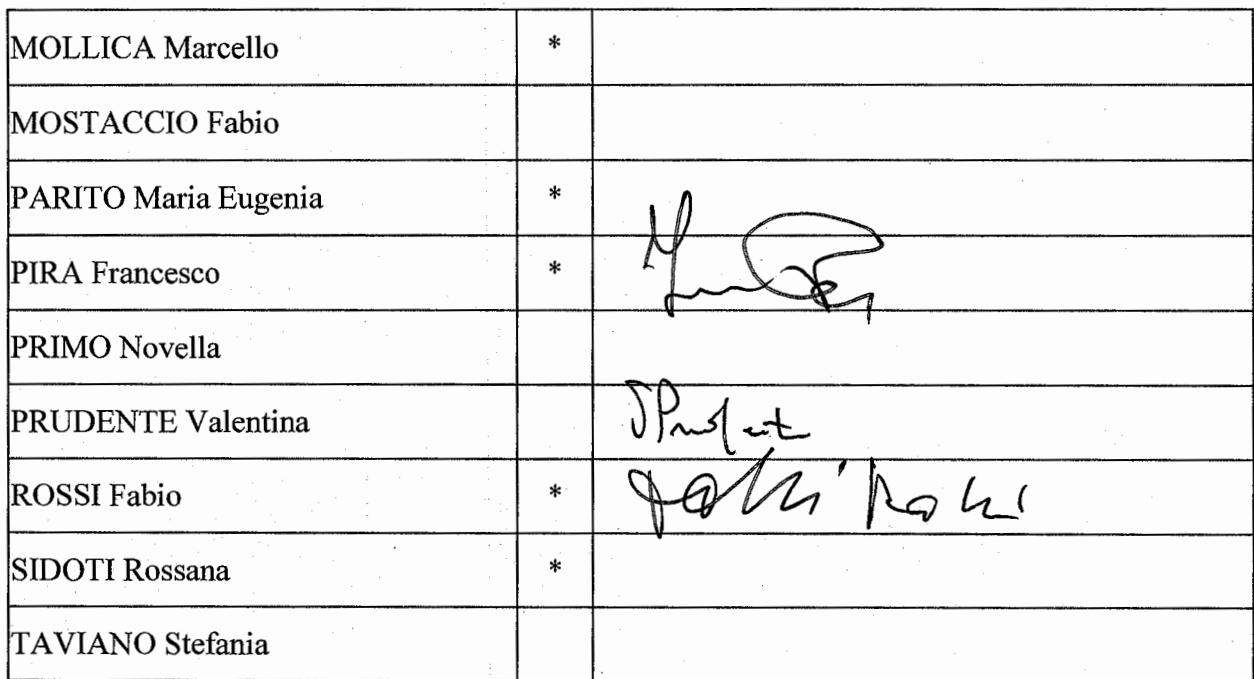 MOLLICA Marcello *
MOSTACCIO Fabio
PARITO Maria Eugenia *
PIRA Francesco *
PRIMO Novella
PRUDENTE Valentina
ROSSI Fabio *
SIDOTI Rossana *
TAVIANO Stefania